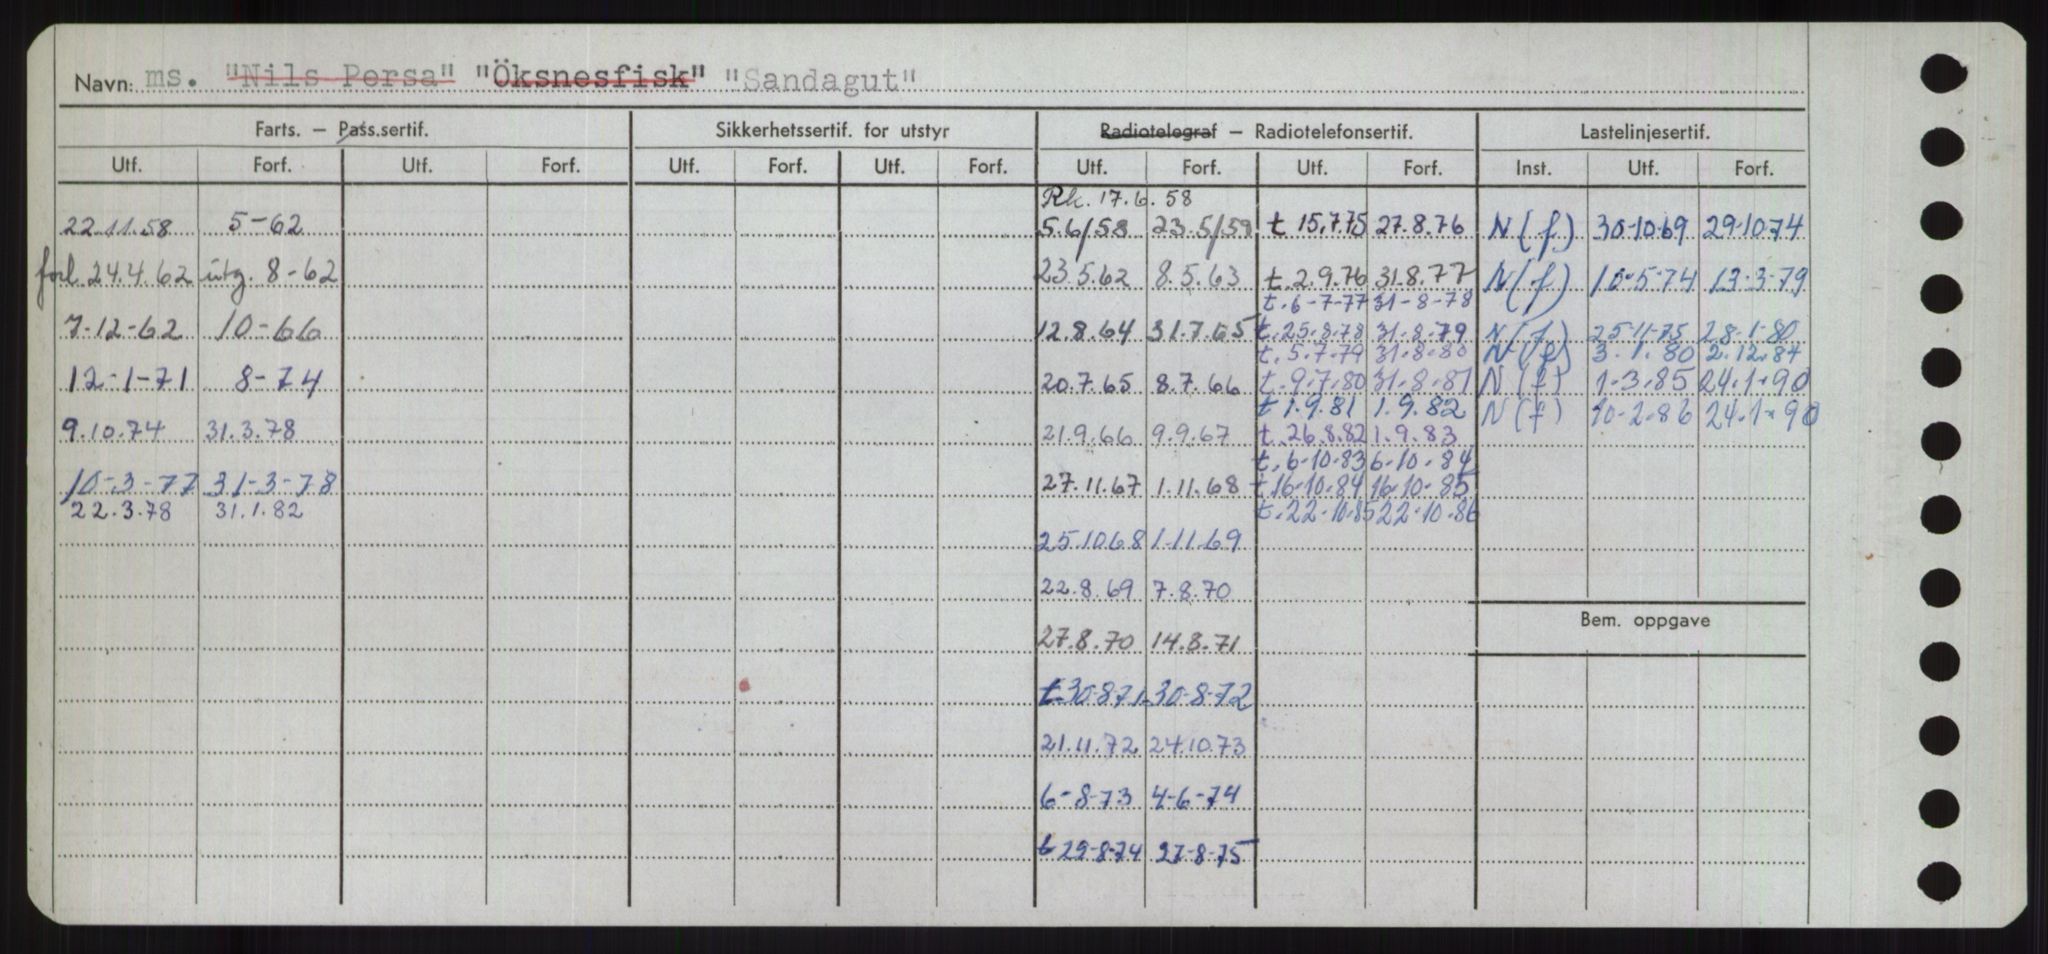 Navn: ms. "Nils Persa" "Öksnesfisk" "Sandagut"
Farts. — Pass.sertif. Sikkerhetssertif. for utstyr Radiotelegraf — Radiotelefonsertif. Lastelinjesertif.
Utf. Forf. Utf. Forf. Utf. Forf. Utf. Forf. Utf. Forf. Utf. Forf. Inst. Utf. Forf.
Rk. 17.6.58
22.11.58 5-62 5.6/58 23.5/59 t 15.7.75 27.8.76 N(f) 30-10-69 29-10-74
forl. 24.4.62 utg. 8-62 23.5.62 8.5.63 t. 2.9.76 31.8.77 N(f) 10-5-74 13-3-79
t. 6-7-77 31-8-78
7-12-62 10-66 12.8.64 31.7.65 t. 25.8.78 31.8.79 N(f) 25-11-75 28-1-80
t. 5.7.79 31.8.80 N(f) 3.1.80 2.12.84
12-1-71 8-74 20.7.65 8.7.66 t. 9.7.80 31.8.81 N(f) 1-3.85 24.1.90
t 1.9.81 1.9.82 N(f) 10-2-86 24.1.90
9.10.74 31.3.78 21.9.66 9.9.67 t. 26.8.82 1.9.83
t. 6-10-83 6-10-84
10-3-77 31-3-78 27.11.67 1.11.68 t 16-10-84 16-10-85
22.3.78 31.1.82 t. 22.10.85 22.10.86
25.10.68 1-11-69
22.8.69 7.8.70
27.8.70 14.8.71
t 30-8-71 30-8-72
21.11.72 24.10.73
6-8-73 4-6-74
t 29-8-74 27-8-75
Bem. oppgave